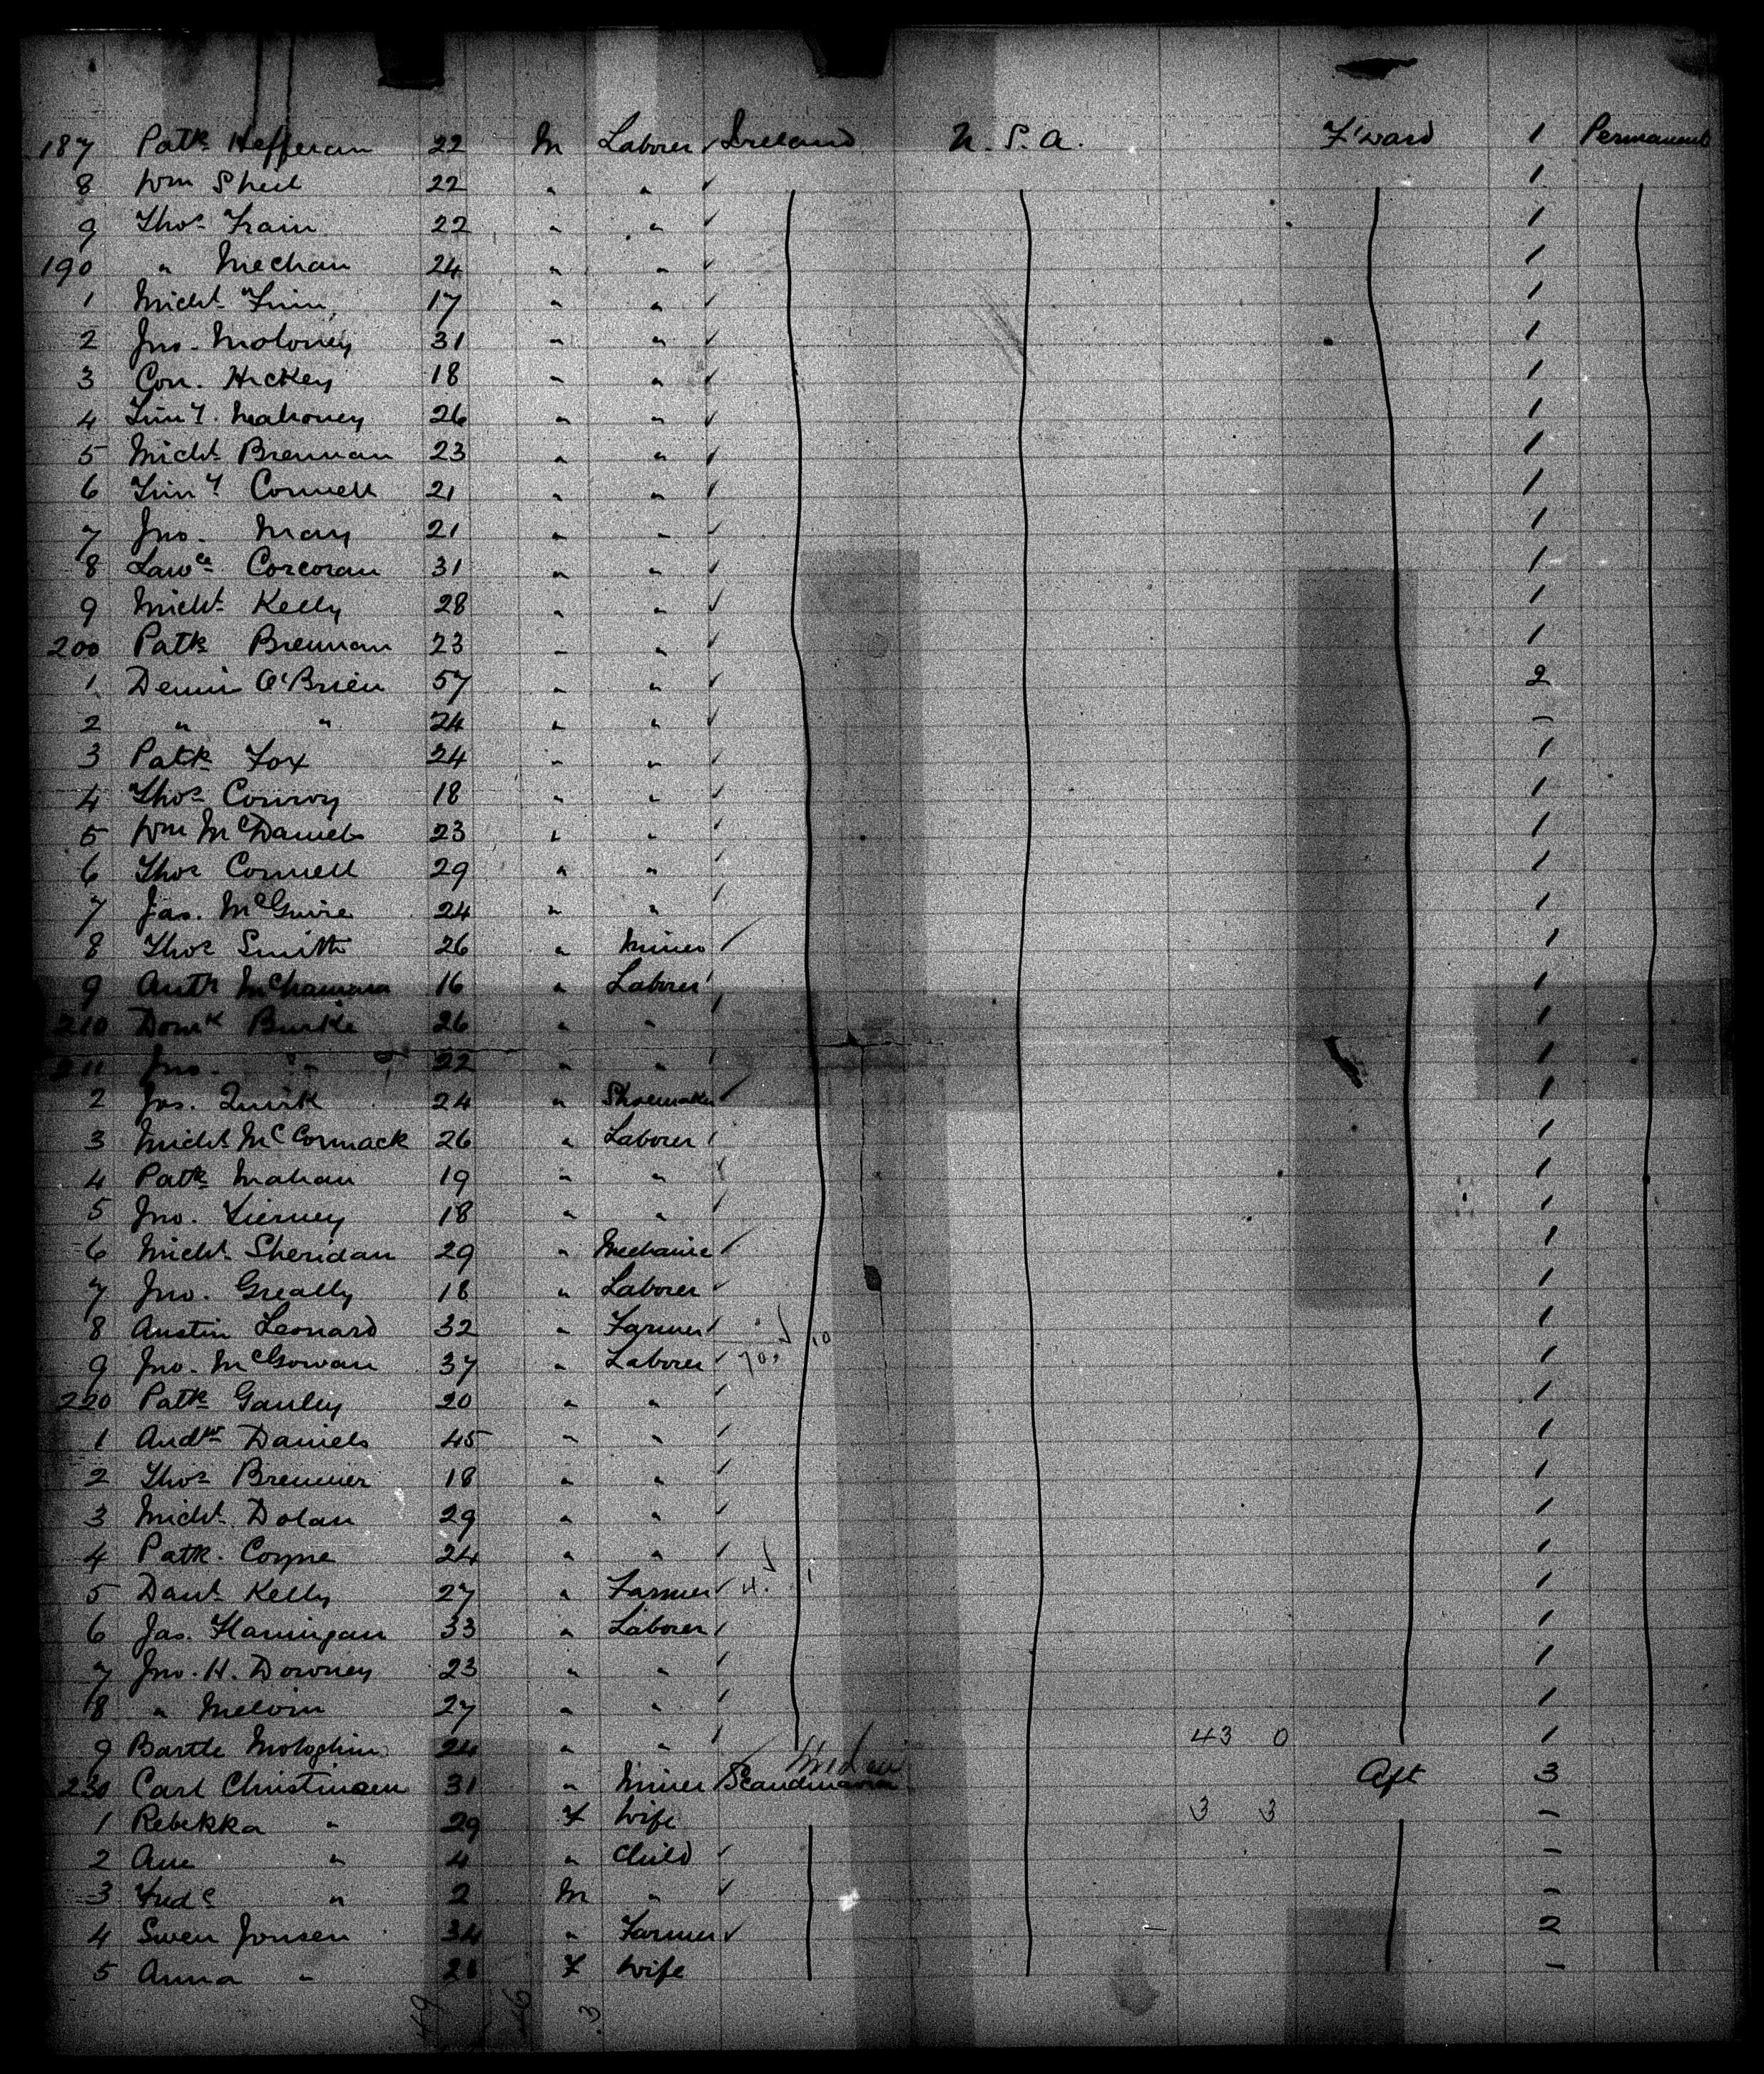 187 Patk Heffernan 22 M Laborer ✓ Ireland U.S.A. F'ward 1 Permanent
8 Wm Sheil 22 " " ✓ 1
9 Thos Train 22 " " ✓ 1
190 " Mechan 24 " " ✓ 1
1 Michl Finn 17 " " ✓ 1
2 Jno. Moloney 31 " " ✓ 1
3 Con. Hickey 18 " " ✓ 1
4 Timy. Mahoney 26 " " ✓ 1
5 Michl Brennan 23 " " ✓ 1
6 Timy Connell 21 " " ✓ 1
7 Jno. May 21 " " ✓ 1
8 Lawce Corcoran 31 " " ✓ 1
9 Michl Kelly 28 " " ✓ 1
200 Patk Brennan 23 " " ✓ 1
1 Dennis O'Brien 57 " " ✓ 2
2 " " 24 " " ✓ –
3 Patk Fox 24 " " ✓ 1
4 Thos Conroy 18 " " ✓ 1
5 Wm McDaniels 23 " " ✓ 1
6 Thos Connell 29 " " ✓ 1
7 Jas. McGuire 24 " " ✓ 1
8 Thos Smith 26 " Miner ✓ 1
9 Anth McNamara 16 " Laborer ✓ 1
210 Domk Burke 26 " " ✓ 1
211 Jno. " 22 " " ✓ 1
2 Jos. Quirk 24 " Shoemaker ✓ 1
3 Michl McCormack 26 " Laborer ✓ 1
4 Patk Mahan 19 " " ✓ 1
5 Jno. Tierney 18 " " ✓ 1
6 Michl Sheridan 29 " Mechanic ✓ 1
7 Jno. Greally 18 " Laborer ✓ 1
8 Austin Leonard 32 " Farmer ✓ 1
9 Jno. McGowan 37 " Laborer ✓ 1
220 Patk Ganley 20 " " ✓ 1
1 Andw Daniels 45 " " ✓ 1
2 Thos Bremner 18 " " ✓ 1
3 Michl Dolan 29 " " ✓ 1
4 Patk. Coyne 24 " " ✓ 1
5 Danl Kelly 27 " Farmer ✓ 4. 1
6 Jas. Hannigan 33 " Laborer ✓ 1
7 Jno. H. Downey 23 " " ✓ 1
8 " Melvin 27 " " ✓ 1
9 Bartle 24 " " ✓ 43 0 1
230 Carl Christinsen 31 " Miner ✓ Scandinavia Aft 3
1 Rebekka " 29 F Wife 3 3 –
2 Ane " 4 " Child ✓ –
3 Fredc " 2 M " ✓ –
4 Swen Jonsen 34 " Farmer ✓ 2
5 Anna " 21 F Wife –